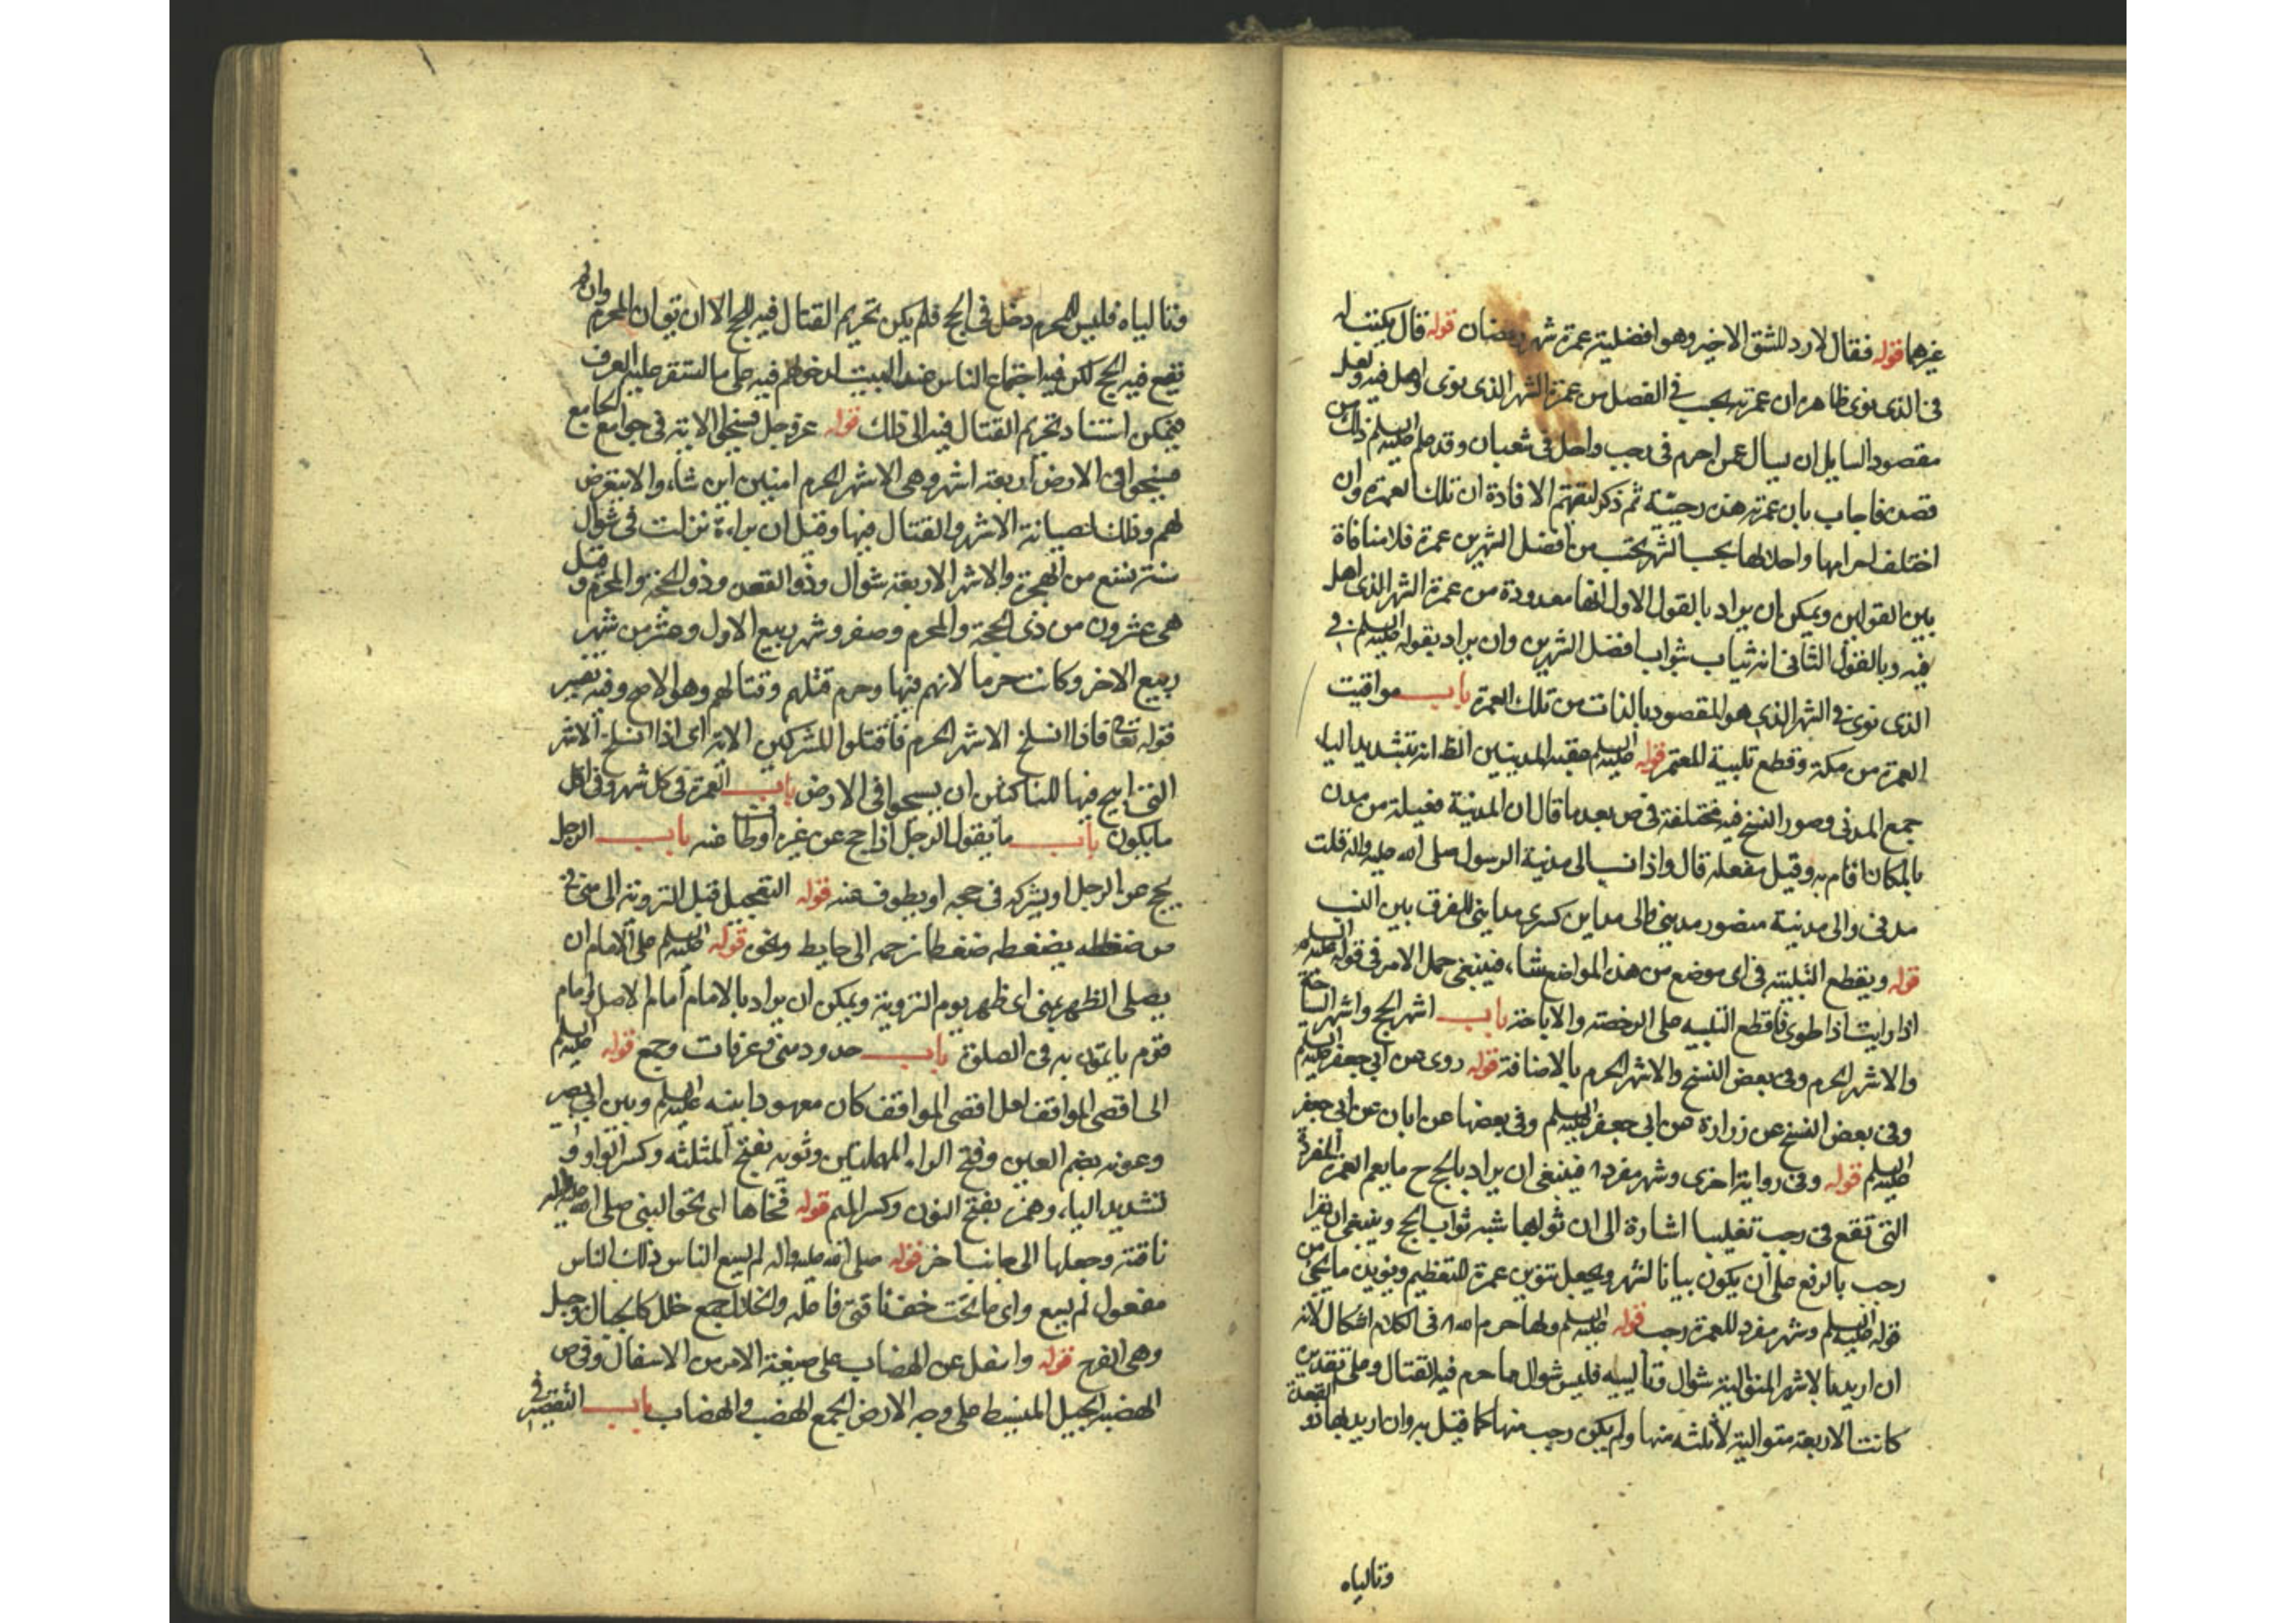 غيرهما قوله فقال لا رد للشق الاخير وهو افضلية عمرة شهر رمضان قوله قال يكتب له
في الذي نوى ظاهره ان عمرته يحسب في الفضل من عمرة الشهر الذي نوى واهل فيه ولعل
مقصود السايل ان يسال عمن احرم في رجب واحل في شعبان وقد علم عليه السلم ذلك من
قصده فاجاب بان عمرته هذه رجبية ثم ذكر لتفهم الافادة ان تلك العمرة وان
اختلف احرامها واحلالها بحسب الشهر يحسب من افضل الشهرين عمرة فلا منافاة
بين القولين ويمكن ان يراد بالقول الاول انها معدودة من عمرة الشهر الذي اهل
فيه وبالقول الثاني انه يثاب ثواب افضل الشهرين وان يراد بقوله عليه السلم في
الذي نوى في الشهر الذي هو المقصود بالذات من تلك العمرة باب مواقيت
العمرة من مكة وقطع تلبية المعتمر قوله عليه السلم عقبة المدنيين الظ انه بتشديد الياء
جمع المدني وصور النسخ فيه مختلفة في ص بعد ما قال ان المدينة فعيلة من مدن
بالمكان اقام به وقيل مفعله قال واذا نسب الى مدينة الرسول صلى الله عليه واله قلت
مدني والى مدينة منصور مديني والى مداين كسرى مدايني للفرق بين النسب
قوله ويقطع التلبيته في اى موضع من هذه المواضع شاء، فينبغى حمل الامر في قوله عليه السلم
اذا رايت ذا طوى فاقطع التلبيه على الرخصته والاباحة باب اشهر الحج واشهر السياحة
والاشهر الحرم وفي بعض النسخ والاشهر الحرم بالاضافة قوله روى عن ابي جعفر عليه السلم
وفي بعض النسخ عن زرارة عن ابي جعفر عليه السلم وفي بعضها عن ابان عن ابي جعفر
عليه السلم قوله وفي رواية اخرى وشهر مفرد ا فينبغى ان يراد بالحج ح ما يعم العمرة المفردة
التي تقع في رجب تغليبا اشارة الى ان ثوابها شبه ثواب الحج وينبغى ان يقرا
رجب بالرفع على ان يكون بيانا لشهر ويجعل تنوين عمرة للتعظيم ويؤيده ما يجئ من
قوله عليه السلم وشهر مفرد للعمرة رجب قوله عليه السلم ولها حرم اه في الكلام اشكال لانه
ان اريد بالاشهر المتوالية شوال وتالييه فليس شوال ما حرم فيه القتال وعلى تقديره
كانت الاربعة متوالية لا ثلثه منها ولم يكن رجب منها كما قيل به وان اريد بها ذو القعدة
وتالياه
وتالياه فليس المحرم دخل في الحج فلم يكن تحريم القتال فيه للحج الا ان يق ان المحرم وان لم
يقع فيه الحج لكن فيه اجتماع الناس عند البيت لدخولهم فيه على ما استقر عليه العرف
فيمكن استناد تحريم القتال فيه الى ذلك قوله عز وجل فسيحوا الاية في جوامع الجامع
فسيحوا في الارض اربعة اشهر وهي الاشهر الحرم امنين اين شاء، والا يتعرض
لهم وذلك لصيانة الاشهر والقتال فيها وقيل ان براءة نزلت في شوال
سنة تسع من الهجرة والاشهر الاربعة شوال وذو القعدة وذو الحجة والمحرم وقيل
هي عشرون من ذى الحجة والمحرم وصفر وشهر ربيع الاول وعشر من شهر
ربيع الاخر وكانت حرما لانهم فيها وحرم قتلهم وقتالهم وهو الاصح وفيه تفسير
قوله تعالى فاذا انسلخ الاشهر الحرم فاقتلوا المشركين الاية اى اذا انسلخ الاشهر
التي ابيح فيها للناكثين ان يسيحوا في الارض باب العمرة في كل شهر وفي اقل
ما يكون باب ما يقول الرجل اذا حج عن غيره او طاف عنه باب الرجل
يحج عن الرجل او يشركه في حجه او يطوف عنه قوله التعجيل قبل التروية الى منى في
ص ضغطه يضغطه ضغطا زحمه الى حايط ونحوه قوله عليه السلم على الامام ان
يصلى الظهر بمنى اى ظهر يوم التروية ويمكن ان يراد بالامام امام الاصل وامام
قوم يامون به في الصلوة باب حدود منى وعرفات وجمع قوله عليه السلم
الى اقصى المواقف لعل اقصى المواقف كان معهودا بينه عليه السلم وبين ابي بصير
وعرنه بضم العين وفتح الراء المهملتين وثويه بفتح المثلثه وكسر الواو و
تشديد الياء، ونمرة بفتح النون وكسر الميم قوله فنحاها اى نحى النبي صلى الله عليه واله
ناقته وجعلها الى جانب اخر قوله صلى الله عليه واله لم يسع الناس ذلك الناس
مفعول لم يسع واى ما تحت خف ناقتي فاعله والخلال جمع خلل كالجبال وجبل
وهي الفرج قوله واسفل عن الهضاب على صيغة الامر من الاسفال وفي ص
الهضبه الجبل المنبسط على وجه الارض والجمع الهضب والهضاب باب التقصير في